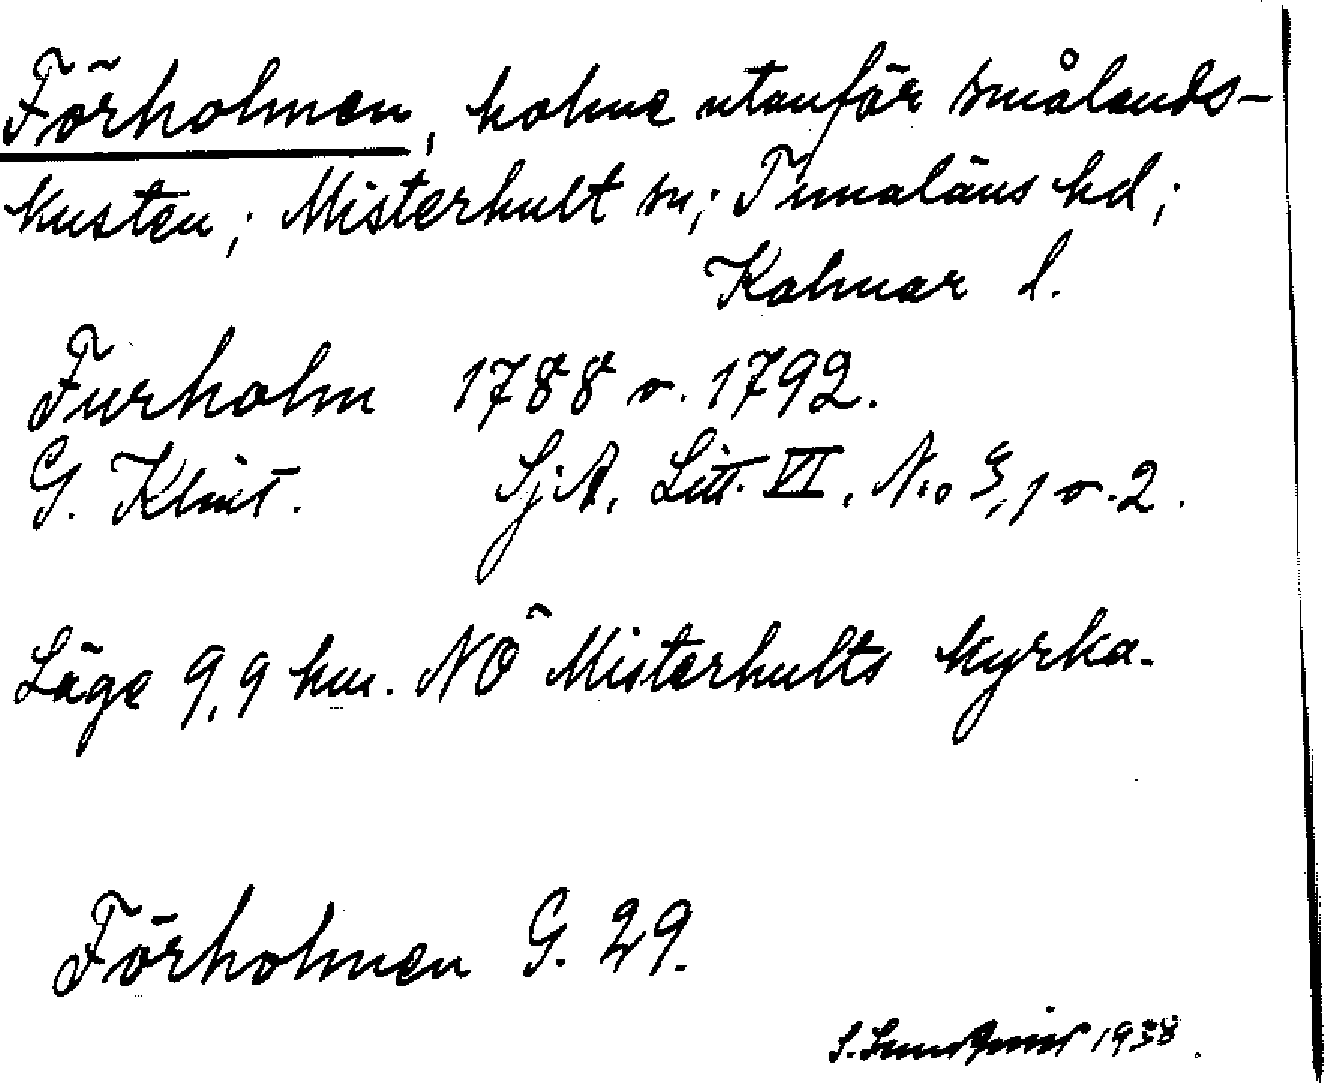 Förholmen, holme utanför smålands-
kusten; Misterhult sn; Tunaläns hd;
Kalmar l.
Furholm 1788 o. 1792.
G. Klint. Sj.A. Litt. VI, N:o 3, 1 o. 2.
Läge 9,9 km. NÖ Misterhults kyrka.
Förholmen G. 29.
S. 1938.